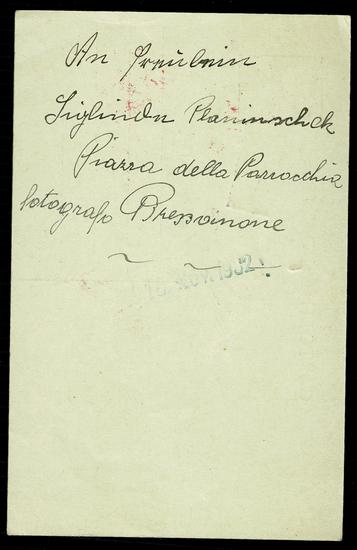 An Fräulein
Siglinde Planinschek
Piazza della Parrocchia
fotografo Bressanone
16. NOV. 1932